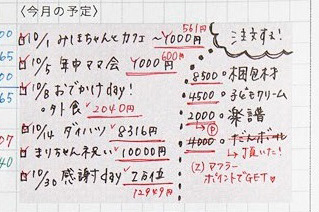 〈今月の予定〉
10/1 みほちゃんとカフェ 〜1000円 561円
10/5 年中ママ会 1000円 600円
10/8 おでかけday!
・外食 2040円
10/14 ダイハツ 8316円
まりちゃん祝い 10000円
10/30 感謝day 1万位
12949円
注文する!
8500 梱包材
4500 子どもクリーム
2000 楽譜
P
4000 だんボール
→頂いた!
(2) マフラー
ポイントでGET♡
65
00
65
07
40